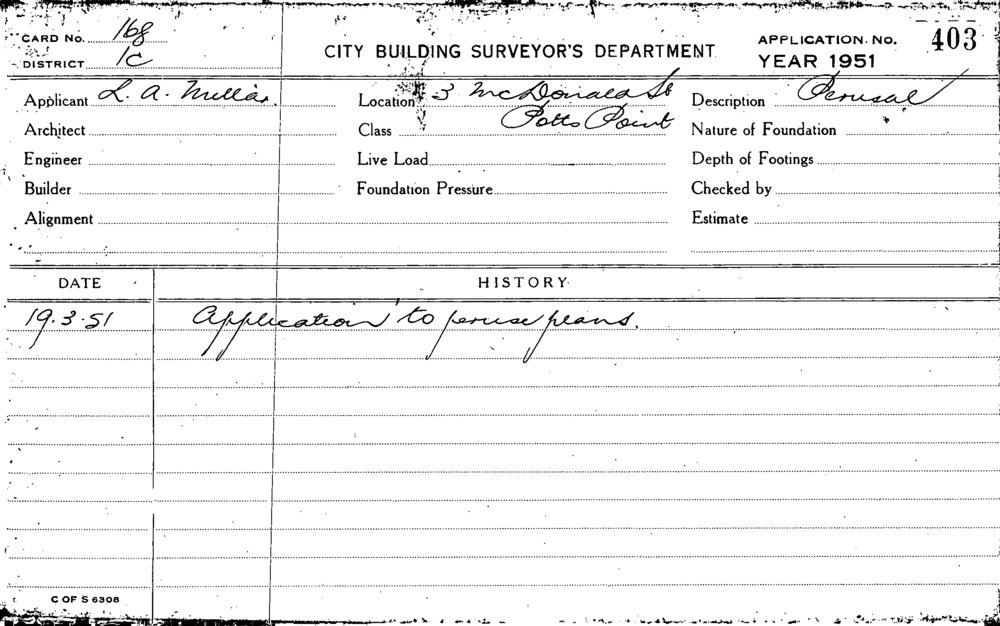 CARD No. 168
DISTRICT 1C
CITY BUILDING SURVEYOR'S DEPARTMENT
APPLICATION. No. 403
YEAR 1951
Applicant L. A. Millar.
Location 3 McDonald St
Potts Point
Description Perusal
Architect
Class
Nature of Foundation
Engineer
Live Load
Depth of Footings
Builder
Foundation Pressure
Checked by
Alignment
Estimate
DATE
HISTORY
19.3.51 Application to peruse plans.
C OF S 6308